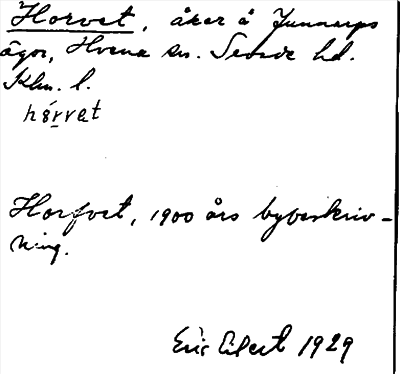 Horvet, åker å Gunnarps
ägor, Hvena sn. Sevede hd.
Klm. l.
hórvet
Horfvet, 1900 års bybeskriv-
ning.
Eric Elgert 1929